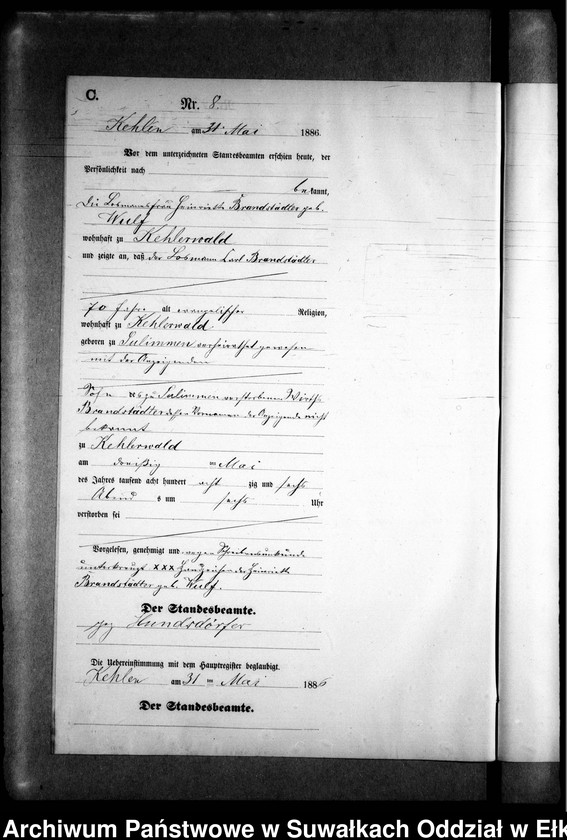 C.
Nr. 8.
Kehlen am 31 Mai 1886.
Vor dem unterzeichneten Standesbeamten erschien heute, der
Persönlichkeit nach
bekannt,
die Losmannsfrau Heinriette Brandstädter geb.
Wulf
wohnhaft zu Kehlerwald
und zeigte an, daß der Losmann Carl Brandstädter
70 Jahre alt evangelischer Religion,
wohnhaft zu Kehlerwald
geboren zu Sulimmen verheirathet gewesen
mit der Anzeigenden
Sohn des zu Sulimmen verstorbenen Wirths
Brandstädter dessen Vornamen der Anzeigende nicht
bekannt
zu Kehlerwald
am dreißig Mai
des Jahres tausend acht hundert acht zig und sechs
Abends um sechs Uhr
verstorben sei
Vorgelesen, genehmigt und wegen Schreibensunkunde
unterkreuzt xxx Handzeichen der Heinriette
Brandstädter geb. Wulf.
Der Standesbeamte.
gez Hundsdörfer
Die Uebereinstimmung mit dem Hauptregister beglaubigt.
Kehlen am 31 Mai 1886
Der Standesbeamte.
Archiwum Państwowe w Suwałkach Oddział w Ełk